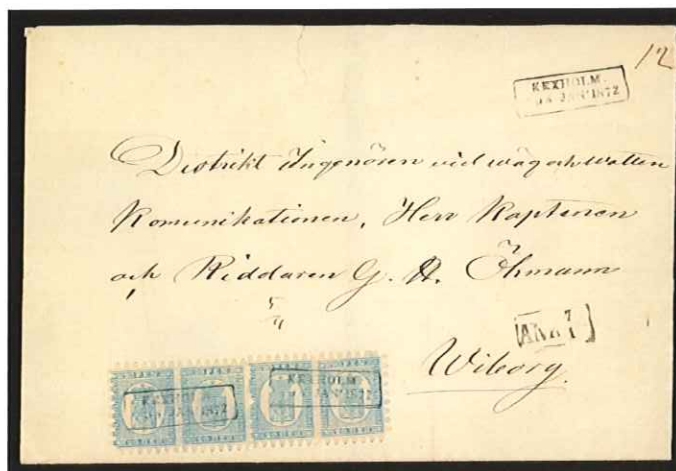 12
KEXHOLM.
JAN 1872
Distrikt Ingenören vid wäg och watten
Komunikationen, Herr Kaptenen
och Riddaren G. A. Öhmann
ANK
7
Wiborg.
KEXHOLM
JAN 1872
KEXHOLM.
JAN 1872